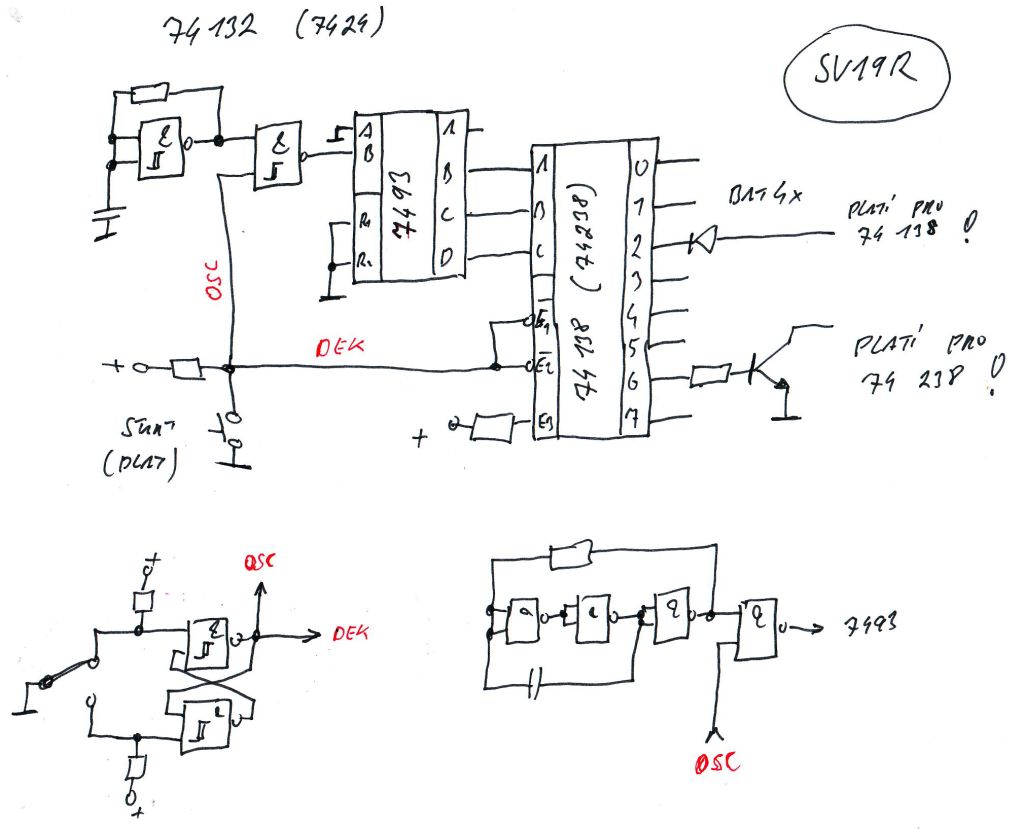 74132 (7424)
SV19R
&
&
A
B
R1
R2
7493
A
B
C
D
A
B
C
E1
E2
E3
74138 (74238)
0
1
2
3
4
5
6
7
BAT4x
PLATÍ PRO
74 138 !
PLATÍ PRO
74 238 !
OSC
DEK
+
START
(DLAT)
+
+
OSC
&
DEK
+
&
&
7493
OSC